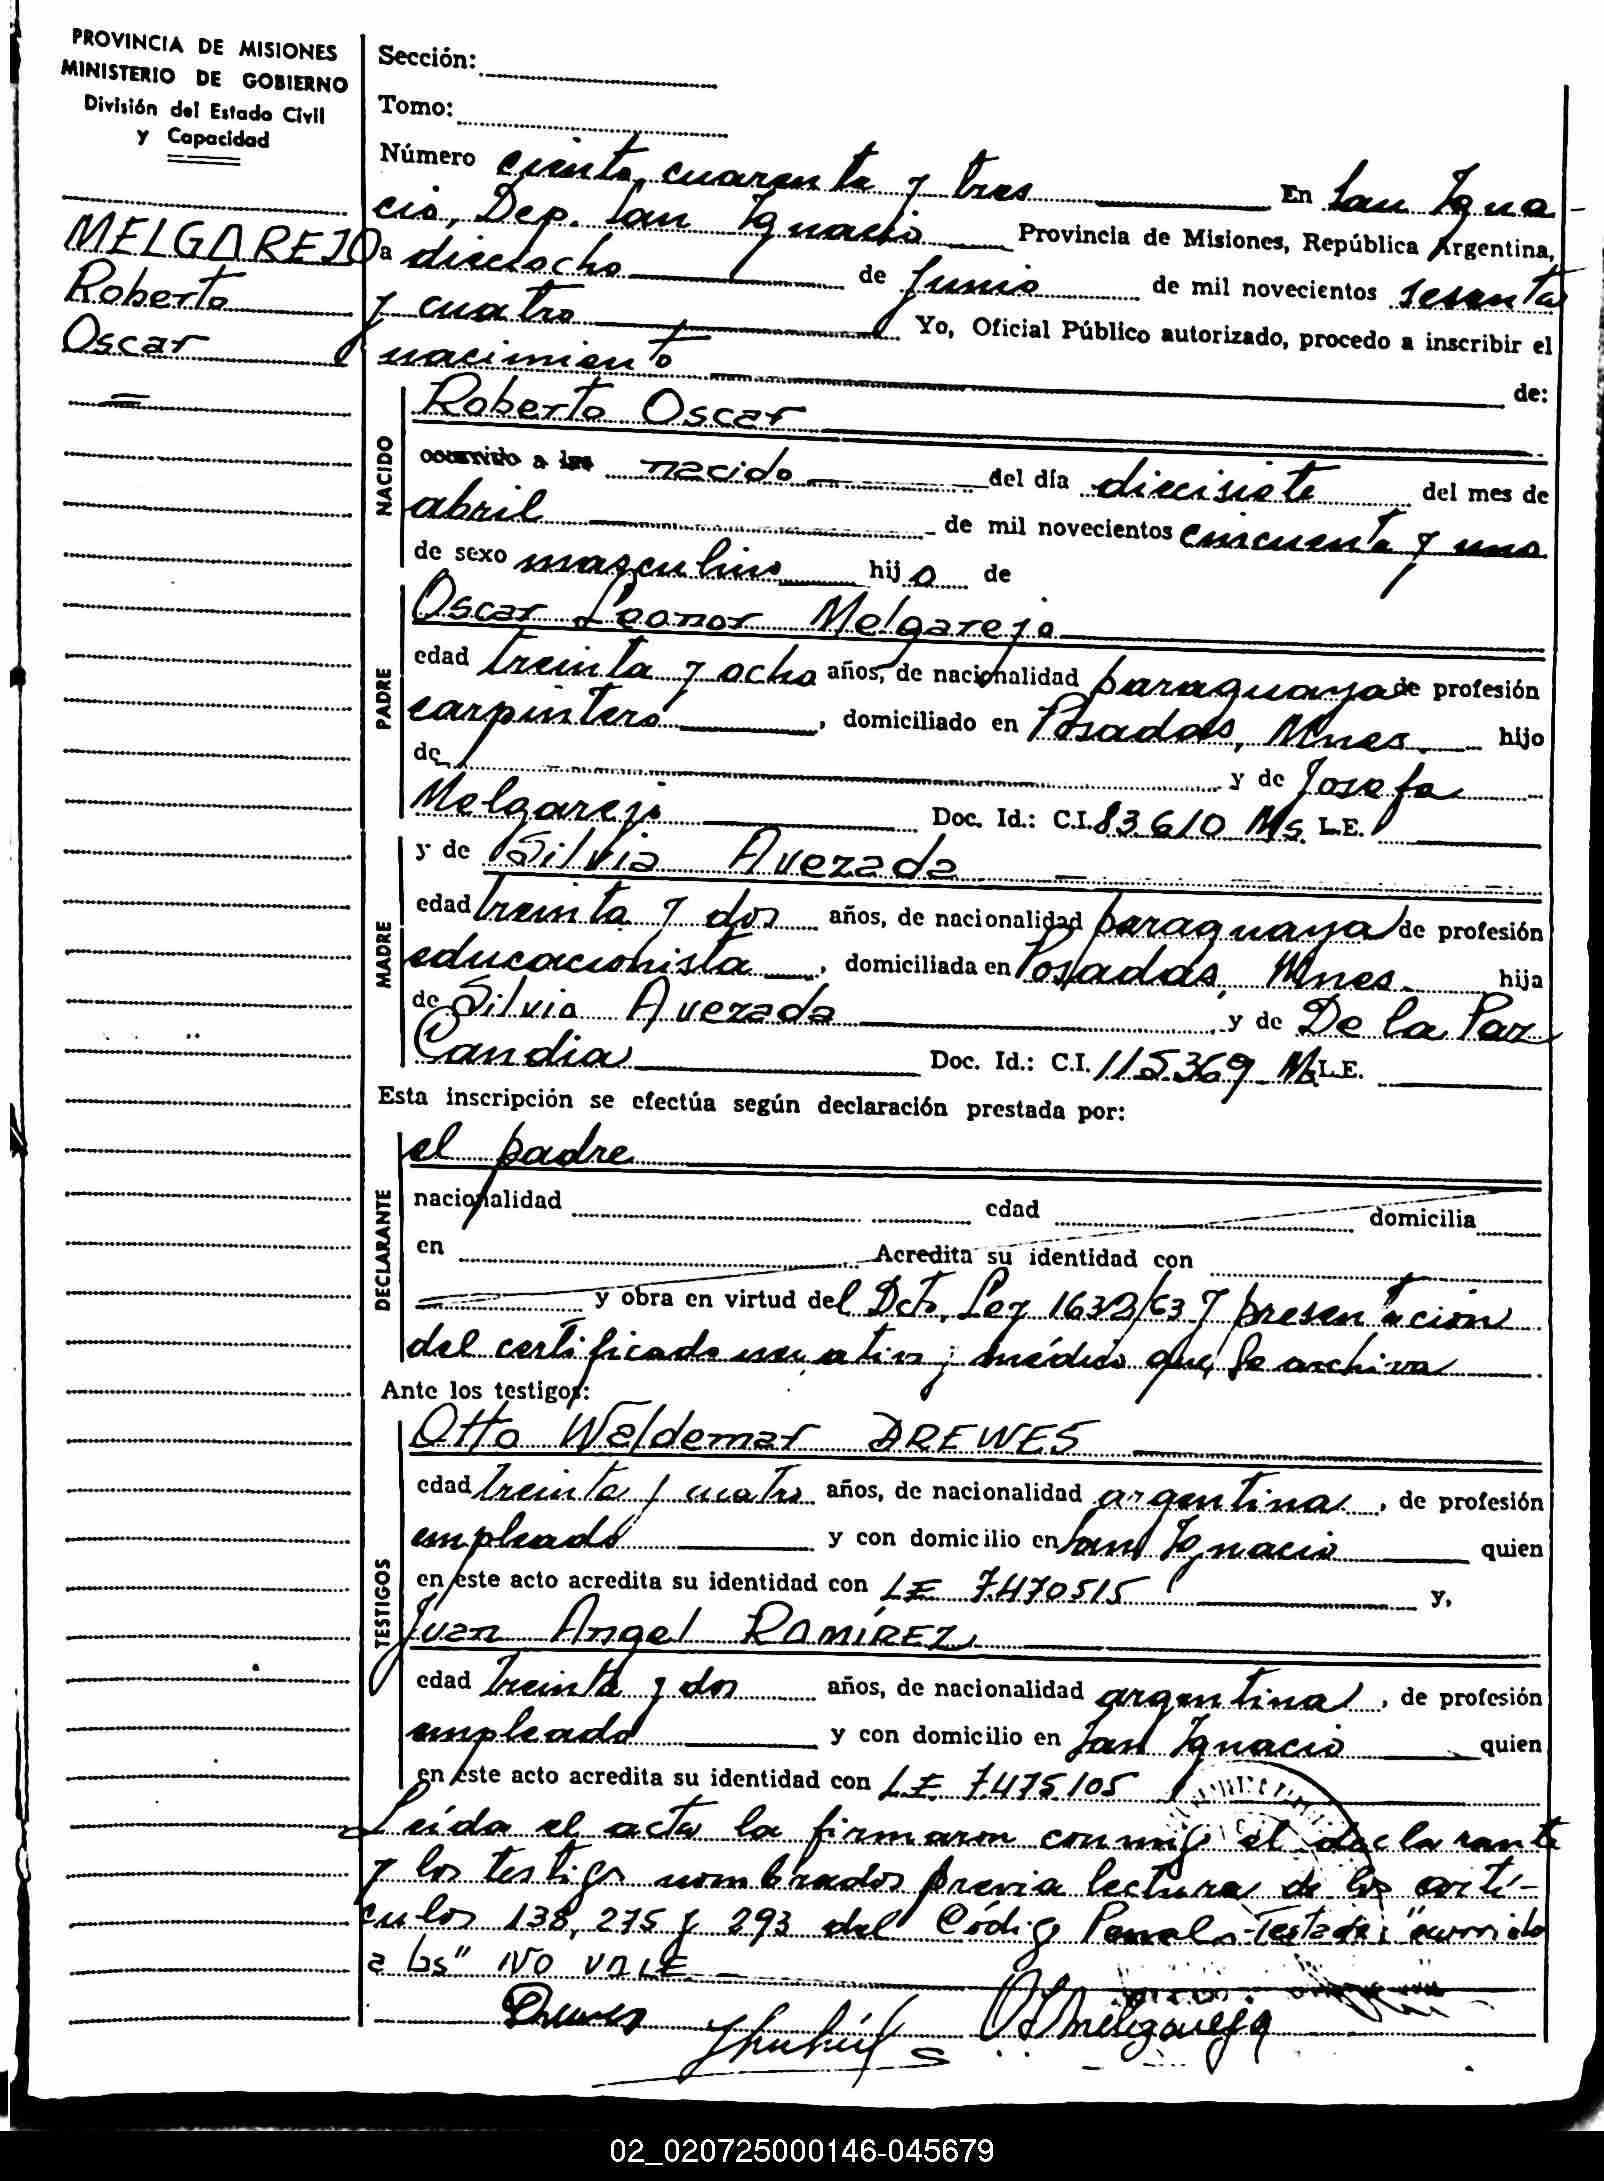 PROVINCIA DE MISIONES
MINISTERIO DE GOBIERNO
División del Estado Civil
y Capacidad
MELGAREJO
Roberto
Oscar
Sección:
Tomo:
Número ciento cuarenta y tres En San Igna-
cio, Dep. San Ignacio Provincia de Misiones, República Argentina,
a dieciocho de Junio de mil novecientos sesenta
y cuatro Yo, Oficial Público autorizado, procedo a inscribir el
nacimiento de:
NACIDO
Roberto Oscar
ocurrido a las nacido del día diecisiete del mes de
abril de mil novecientos cincuenta y uno
de sexo masculino hijo de
PADRE
Oscar Leonor Melgarejo
edad treinta y ocho años, de nacionalidad paraguaya de profesión
carpintero, domiciliado en Posadas, Mnes. hijo
de y de Josefa
Melgarejo Doc. Id.: C.I. 83.610 Ms. L.E.
MADRE
y de Silvia Avezada
edad treinta y dos años, de nacionalidad paraguaya de profesión
educacionista, domiciliada en Posadas, Mnes. hija
de Silvio Avezada y de De la Paz
Candia Doc. Id.: C.I. 115.369 Ms L.E.
Esta inscripción se efectúa según declaración prestada por:
DECLARANTE
el padre
nacionalidad edad domicilia
en Acredita su identidad con
y obra en virtud del Dcto. Ley 1632/63 y presentación
del certificado médico que se archiva
Ante los testigos:
TESTIGOS
Otto Waldemar DREWES
edad treinta y cuatro años, de nacionalidad argentina, de profesión
empleado y con domicilio en San Ignacio quien
en este acto acredita su identidad con L.E. 7.470515 y,
Juan Angel RAMÍREZ
edad treinta y dos años, de nacionalidad argentina, de profesión
empleado y con domicilio en San Ignacio quien
en este acto acredita su identidad con L.E. 7.475.105
Leída el acta la firmaron conmigo el declarante
y los testigos nombrados previa lectura de los artí-
culos 138, 275 y 293 del Código Penal. Testado: "ocurrido
a las" NO VALE
Drewes
02_020725000146-045679